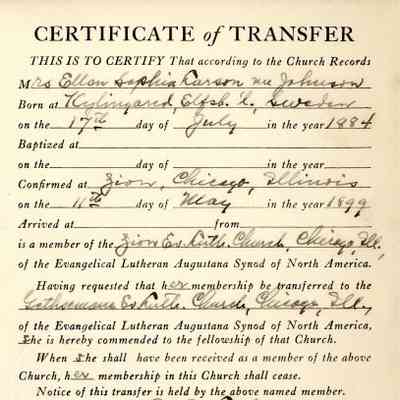 CERTIFICATE of TRANSFER
THIS IS TO CERTIFY That according to the Church Records
Mrs Ellen Sophia Larson nee Johnson
Born at Kylingared, Elfsb. L., Sweden
on the 17th day of July in the year 1884
Baptized at
on the day of in the year
Confirmed at Zion, Chicago, Illinois
on the 11th day of May in the year 1899
Arrived at from
is a member of the Zion Ev. Luth. Church, Chicago, Ill.,
of the Evangelical Lutheran Augustana Synod of North America.
Having requested that her membership be transferred to the
Gethsemane Ev. Luth. Church, Chicago, Ill.,
of the Evangelical Lutheran Augustana Synod of North America,
She is hereby commended to the fellowship of that Church.
When she shall have been received as a member of the above
Church, her membership in this Church shall cease.
Notice of this transfer is held by the above named member.